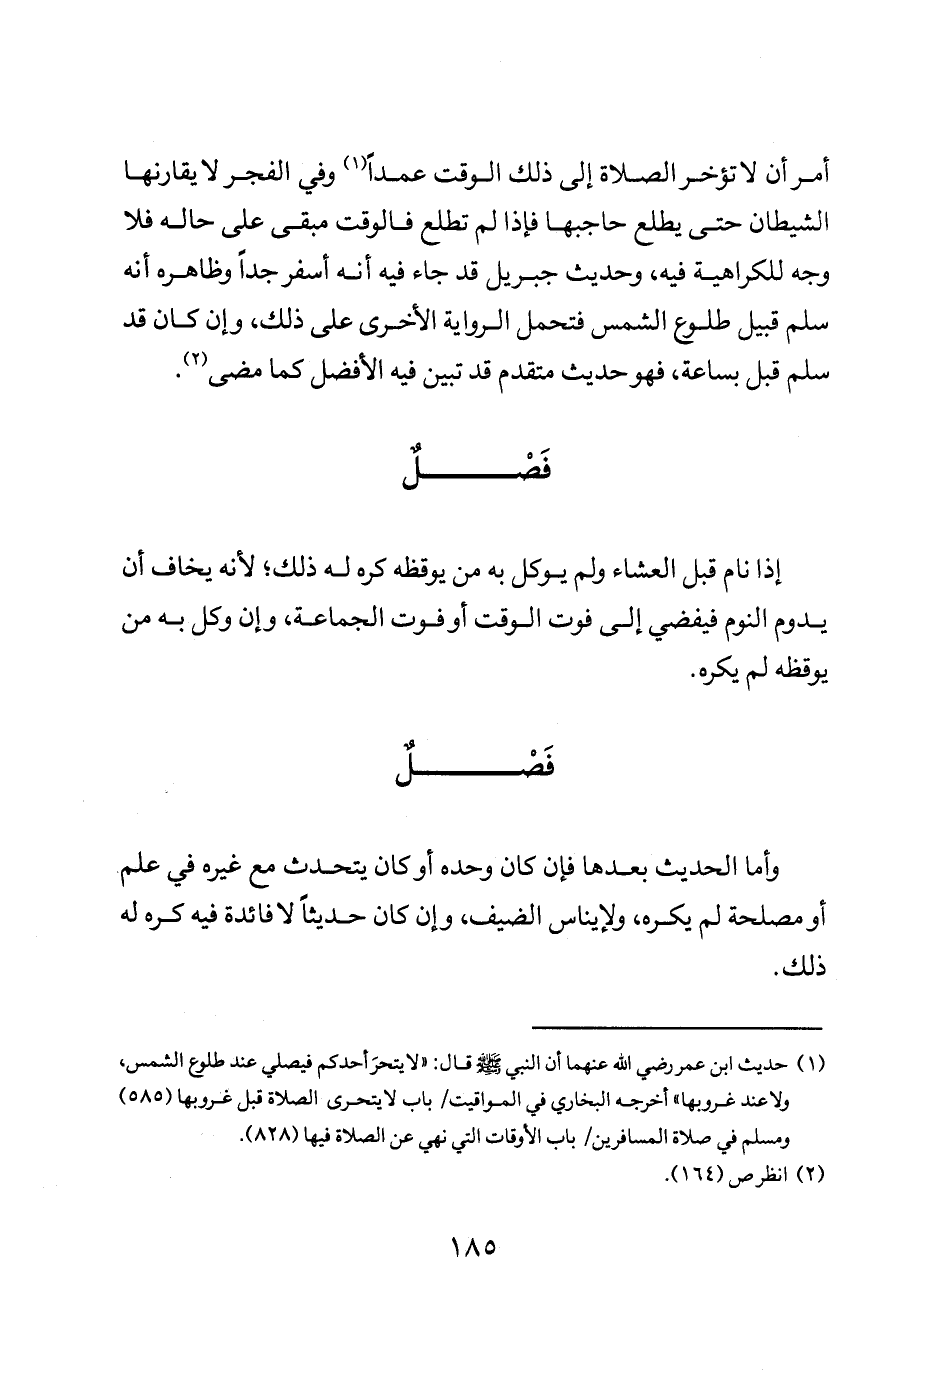 أمر أن لا تؤخر الصلاة إلى ذلك الوقت عمداً(١) وفي الفجر لا يقارنها
الشيطان حتى يطلع حاجبها فإذا لم تطلع فالوقت مبقى على حاله فلا
وجه للكراهية فيه، وحديث جبريل قد جاء فيه أنه أسفر جداً وظاهره أنه
سلم قبيل طلوع الشمس فتحمل الرواية الأخرى على ذلك، وإن كان قد
سلم قبل بساعة، فهو حديث متقدم قد تبين فيه الأفضل كما مضى(٢).
فَصْلٌ
إذا نام قبل العشاء ولم يوكل به من يوقظه كره له ذلك؛ لأنه يخاف أن
يدوم النوم فيفضي إلى فوت الوقت أو فوت الجماعة، وإن وكل به من
يوقظه لم يكره.
فَصْلٌ
وأما الحديث بعدها فإن كان وحده أو كان يتحدث مع غيره في علم
أو مصلحة لم يكره، ولإيناس الضيف، وإن كان حديثاً لا فائدة فيه كره له
ذلك.
(١) حديث ابن عمر رضي الله عنهما أن النبي ﷺ قال: «لا يتحرَ أحدكم فيصلي عند طلوع الشمس،
ولا عند غروبها» أخرجه البخاري في المواقيت/ باب لا يتحرى الصلاة قبل غروبها (٥٨٥)
ومسلم في صلاة المسافرين/ باب الأوقات التي نهي عن الصلاة فيها (٨٢٨).
(٢) انظر ص (١٦٤).
١٨٥